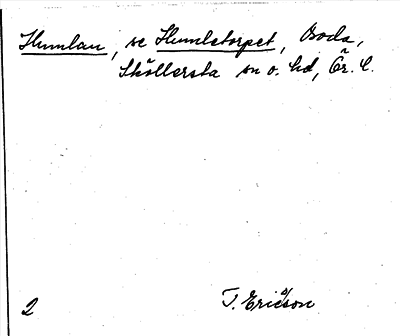 Humlan, se Humletorpet, Boda,
Sköllersta sn o. hd, Ör. l.
2 T. Ericsson